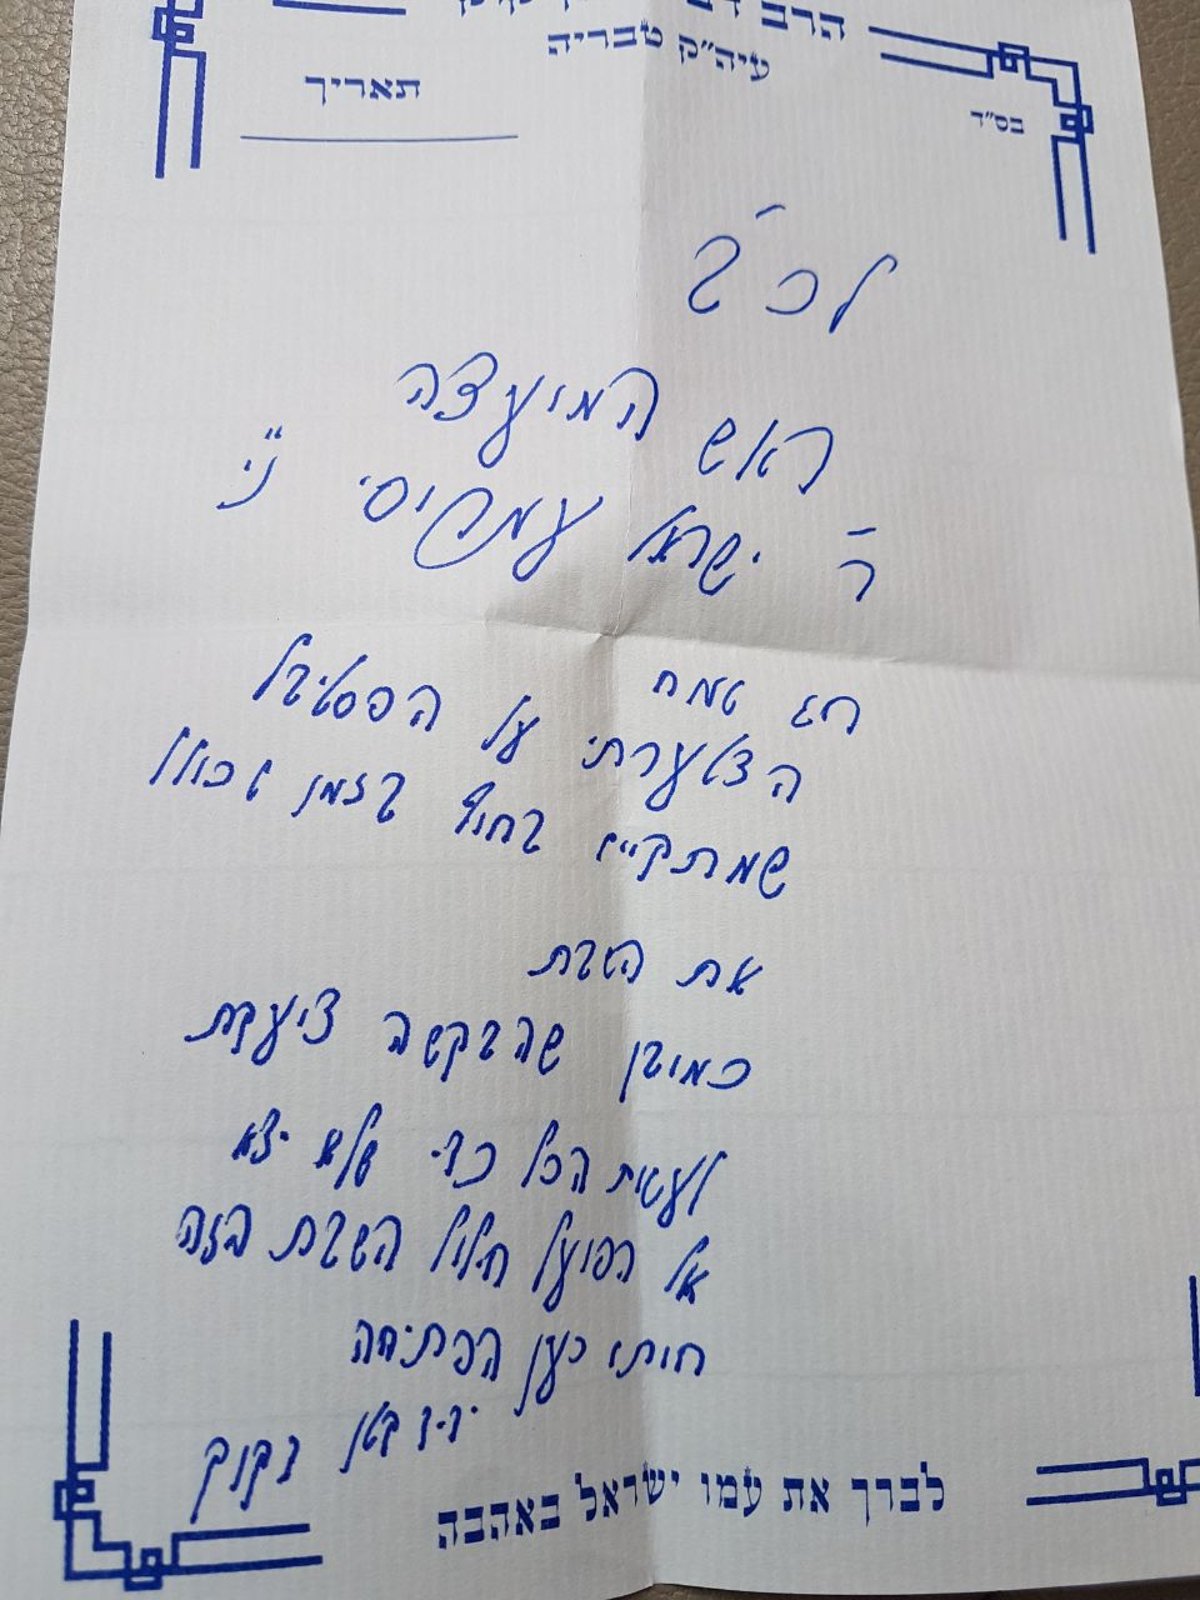 הרב
עיה״ק טבריה
תאריך
בס״ד
לכ״ב
ראש המועצה
ר' ישראל עמרוסי ני״
חג שמח
הצטערתי על הפסטיבל
שמתקיים בחוף בזמן שכולל
את השבת
כמובן שהבקשה ציעקת
לעשות הכל כדי שלא יצא
אל הפועל חילול השבת הזה
חותי כען הפתיחה
דוד קוק
לברך את עמו ישראל באהבה